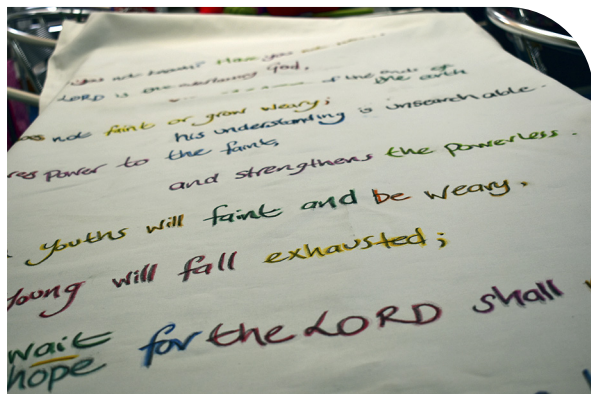 you not known? Have you not
LORD is an everlasting God,
of the ends of the earth
not faint or grow weary;
his understanding is unsearchable.
power to the faint,
and strengthens the powerless.
youths will faint and be weary.
young will fall exhausted;
wait for the LORD shall
hope